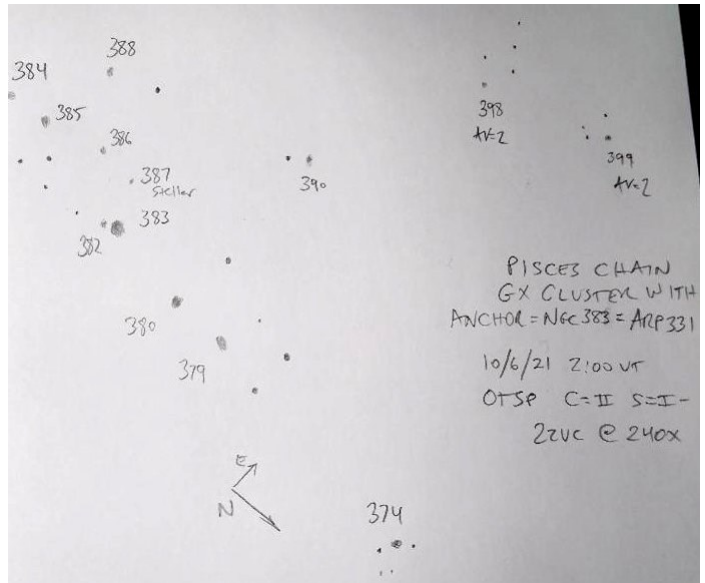 388
384
385
386
387
Steller
390
383
382
380
379
398
AV=2
399
AV=2
PISCES CHAIN
GX CLUSTER WITH
ANCHOR = NGC 383 = ARP 331
10/6/21 2:00 UT
OTSP C=II S=I-
22UC @ 240X
E
N
374